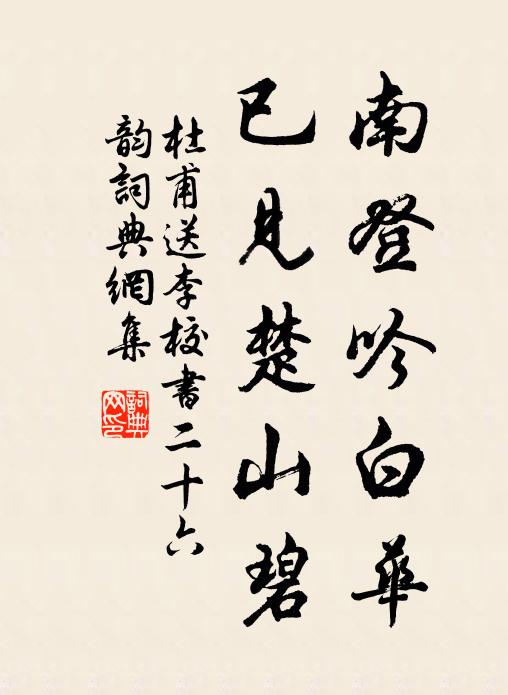 南登吟白華
已見楚山碧
杜甫送李校書二十六
韵詞典網集
詞典網印